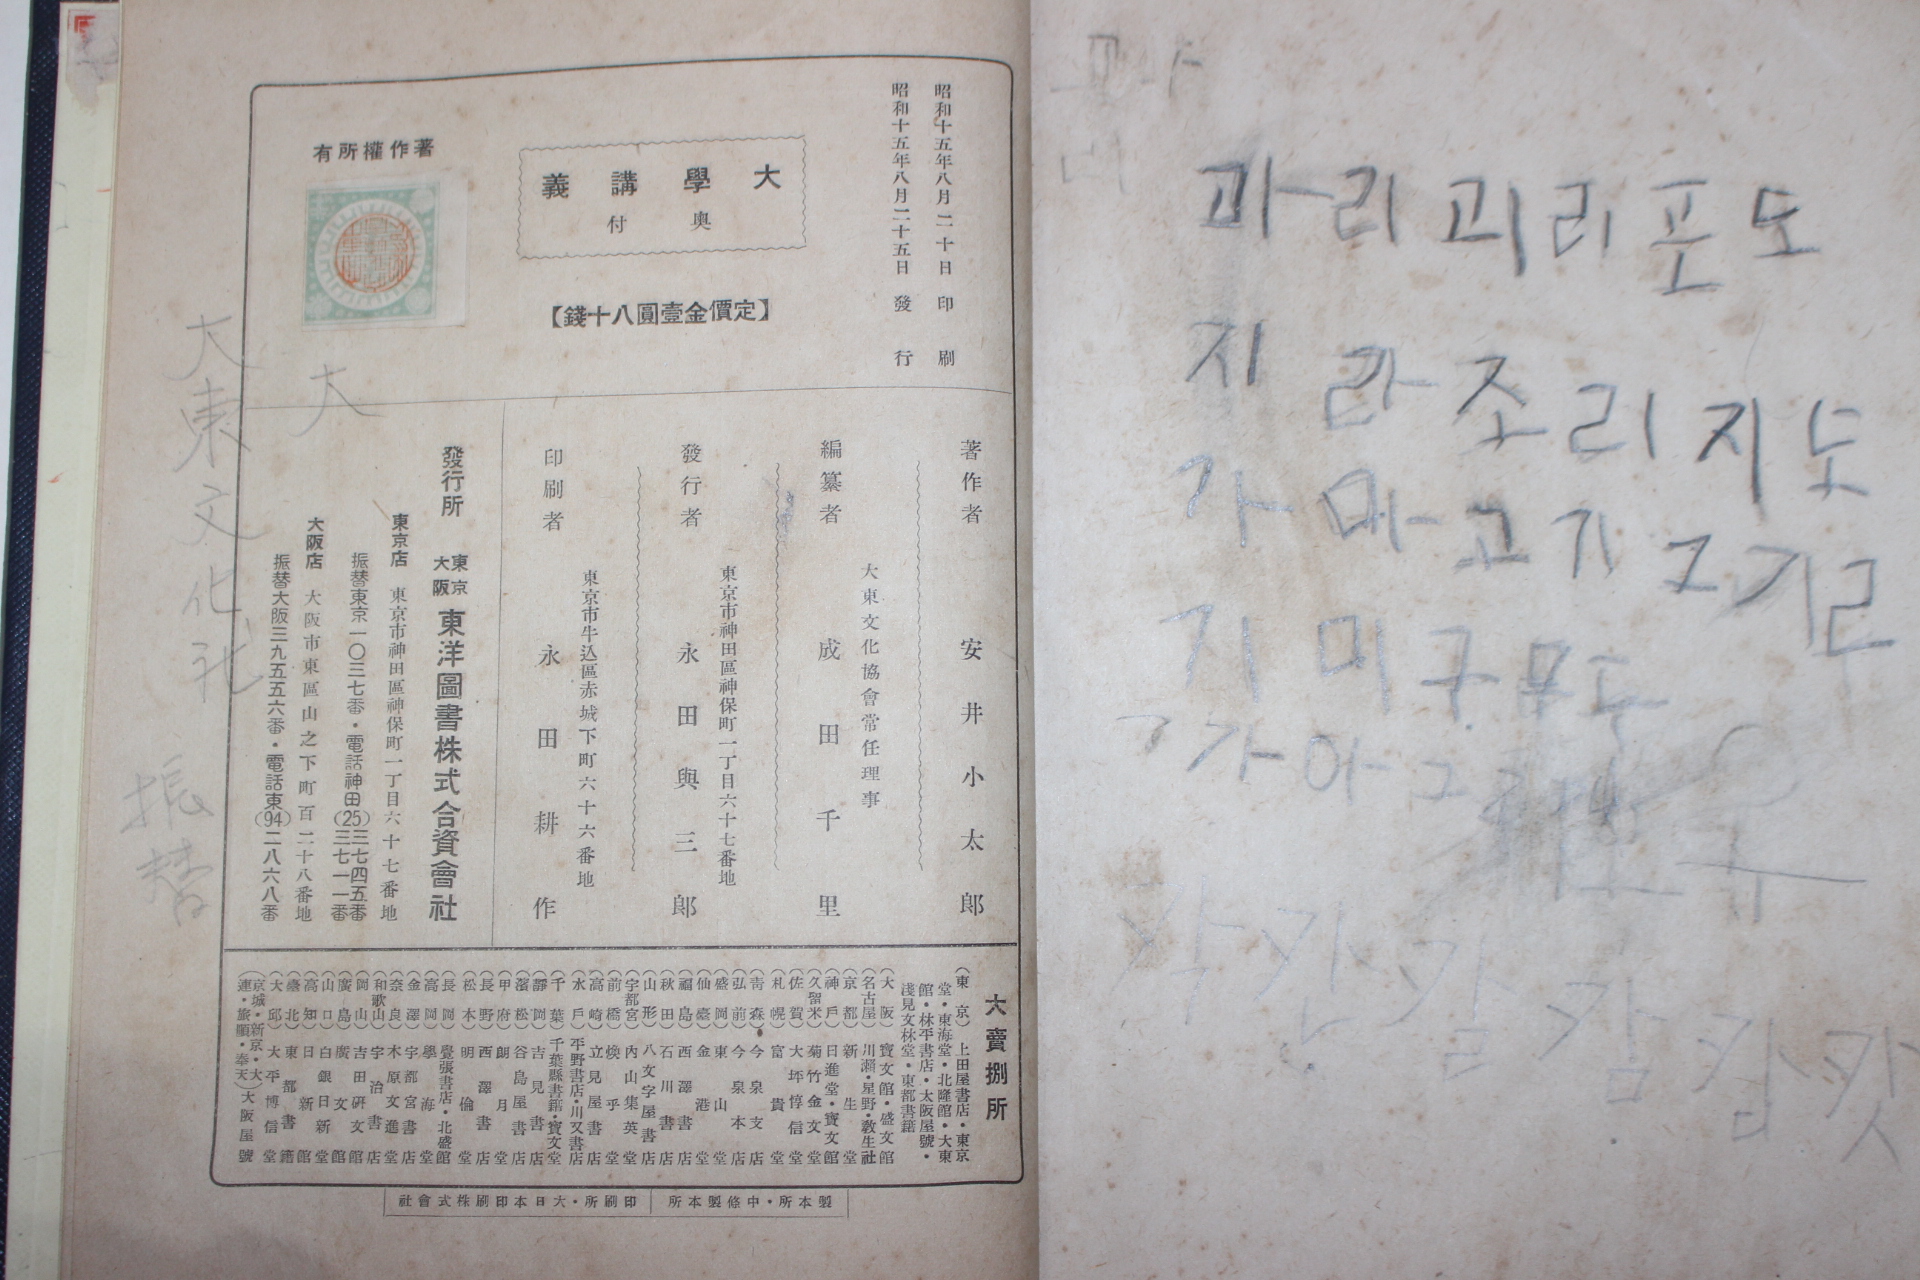 昭和十五年八月二十日印刷
昭和十五年八月二十五日發行
大學講義
奥付
【定價金壹圓八十錢】
著作權所有
著作者 安井小太郎
編纂者 大東文化協會常任理事 成田千里
發行者 東京市神田區神保町一丁目六十七番地 永田與三郎
印刷者 東京市牛込區赤城下町六十六番地 永田耕作
發行所 東京 大阪 東洋圖書株式合資會社
東京店 東京市神田區神保町一丁目六十七番地
振替東京一〇三七番・電話神田(25)三七四五番 三七一一番
大阪店 大阪市東區山之下町百二十八番地
振替大阪三九五五六番・電話東(94)二八六八番
大賣捌所
(東京)上田屋書店・東京
堂・東海堂・北隆館・大東
館・林平書店・大阪屋號・
淺見文林堂・東都書籍
(大阪)寶文館・盛文館
(名古屋)川瀬・星野・教生社
(京都)新生堂
(神戶)日進堂・寶文館
(久留米)菊竹金文堂
(佐賀)大坪惇信堂
(札幌)富貴堂
(靑森)今泉支店
(弘前)今泉本店
(盛岡)東山堂
(仙臺)金港堂
(福島)西澤書店
(秋田)石川書店
(山形)八文字屋書店
(宇都宮)內山集英堂
(前橋)煥乎堂
(高崎)立見屋書店
(水戶)平野書店・川又書店
(千葉)千葉縣書籍・寶文堂
(靜岡)吉見書店
(濱松)谷島屋書店
(甲府)朗月堂
(長野)西澤書店
(松本)明倫堂
(長岡)覺張書店・北盛館
(高岡)學海堂
(金澤)宇都宮書店
(奈良)木原文進堂
(和歌山)宇治書店
(岡山)吉田硏文館
(廣島)廣文館
(山口)白銀日新堂
(高知)日新館
(臺北)東都書籍
(大邱)大平博信堂
(京城・新京・大
連・旅順・奉天)大阪屋號
製本所・中條製本所
印刷所・大日本印刷株式會社
大
大東文化社
振替
과리괴리포도
지 조리지도
가마고기그기로
기미구무두
ㄱ가아그
각간갈감갑갓